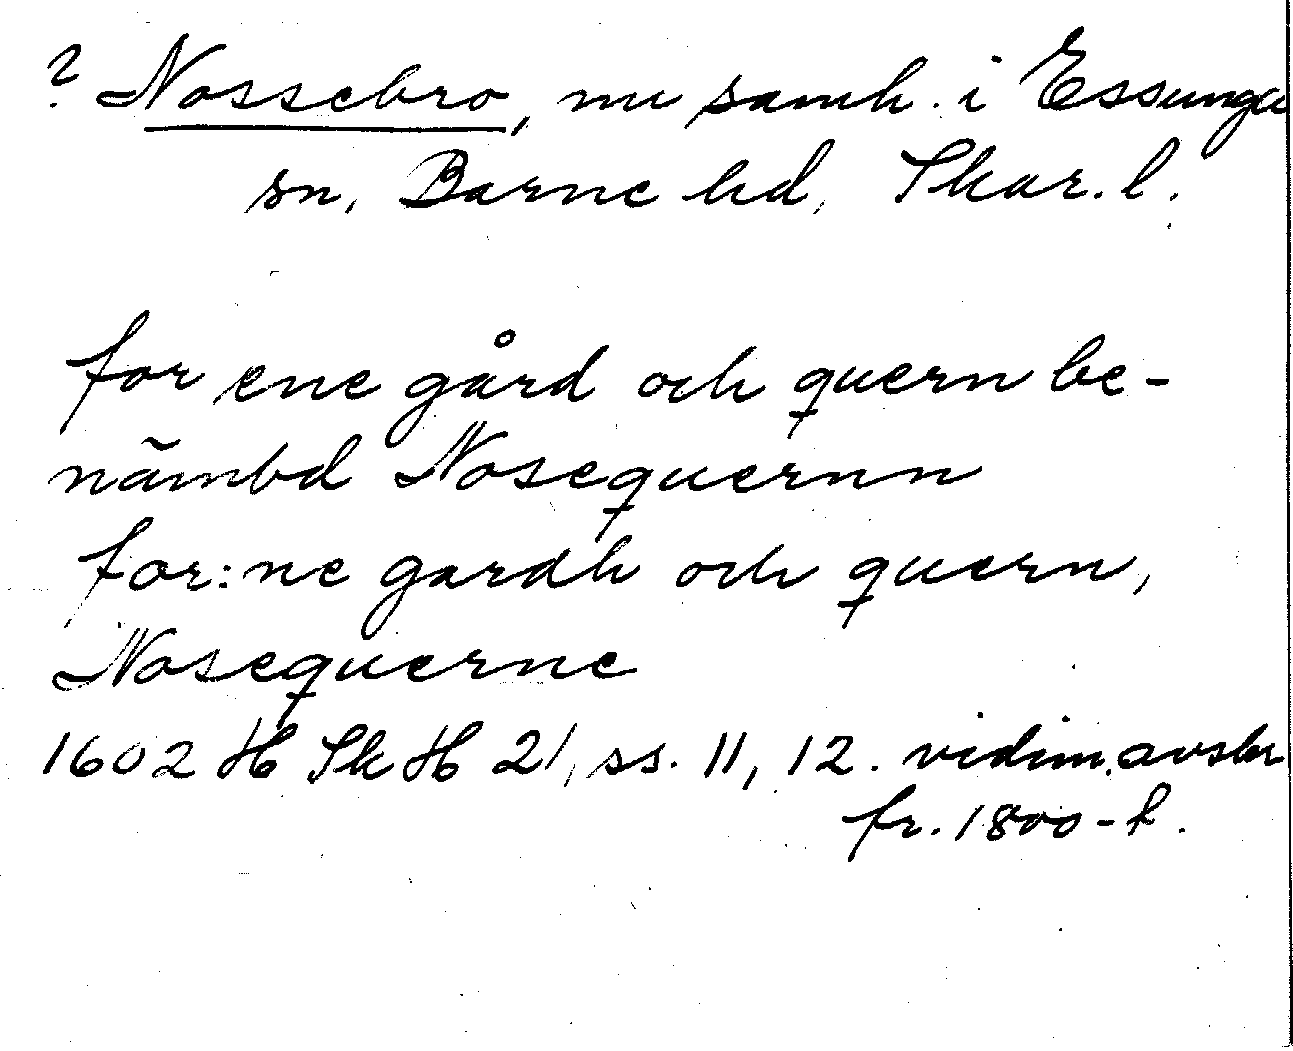 ? Nossebro, nu samh. i Essunga
sn, Barne hd, Skar. l.
for ene gård och quern be-
nämbd Nosequernn
for:ne gardh och quern,
Nosequerne
1602 H Sk H 21, ss. 11, 12. vidim. avskr
fr. 1800-t.